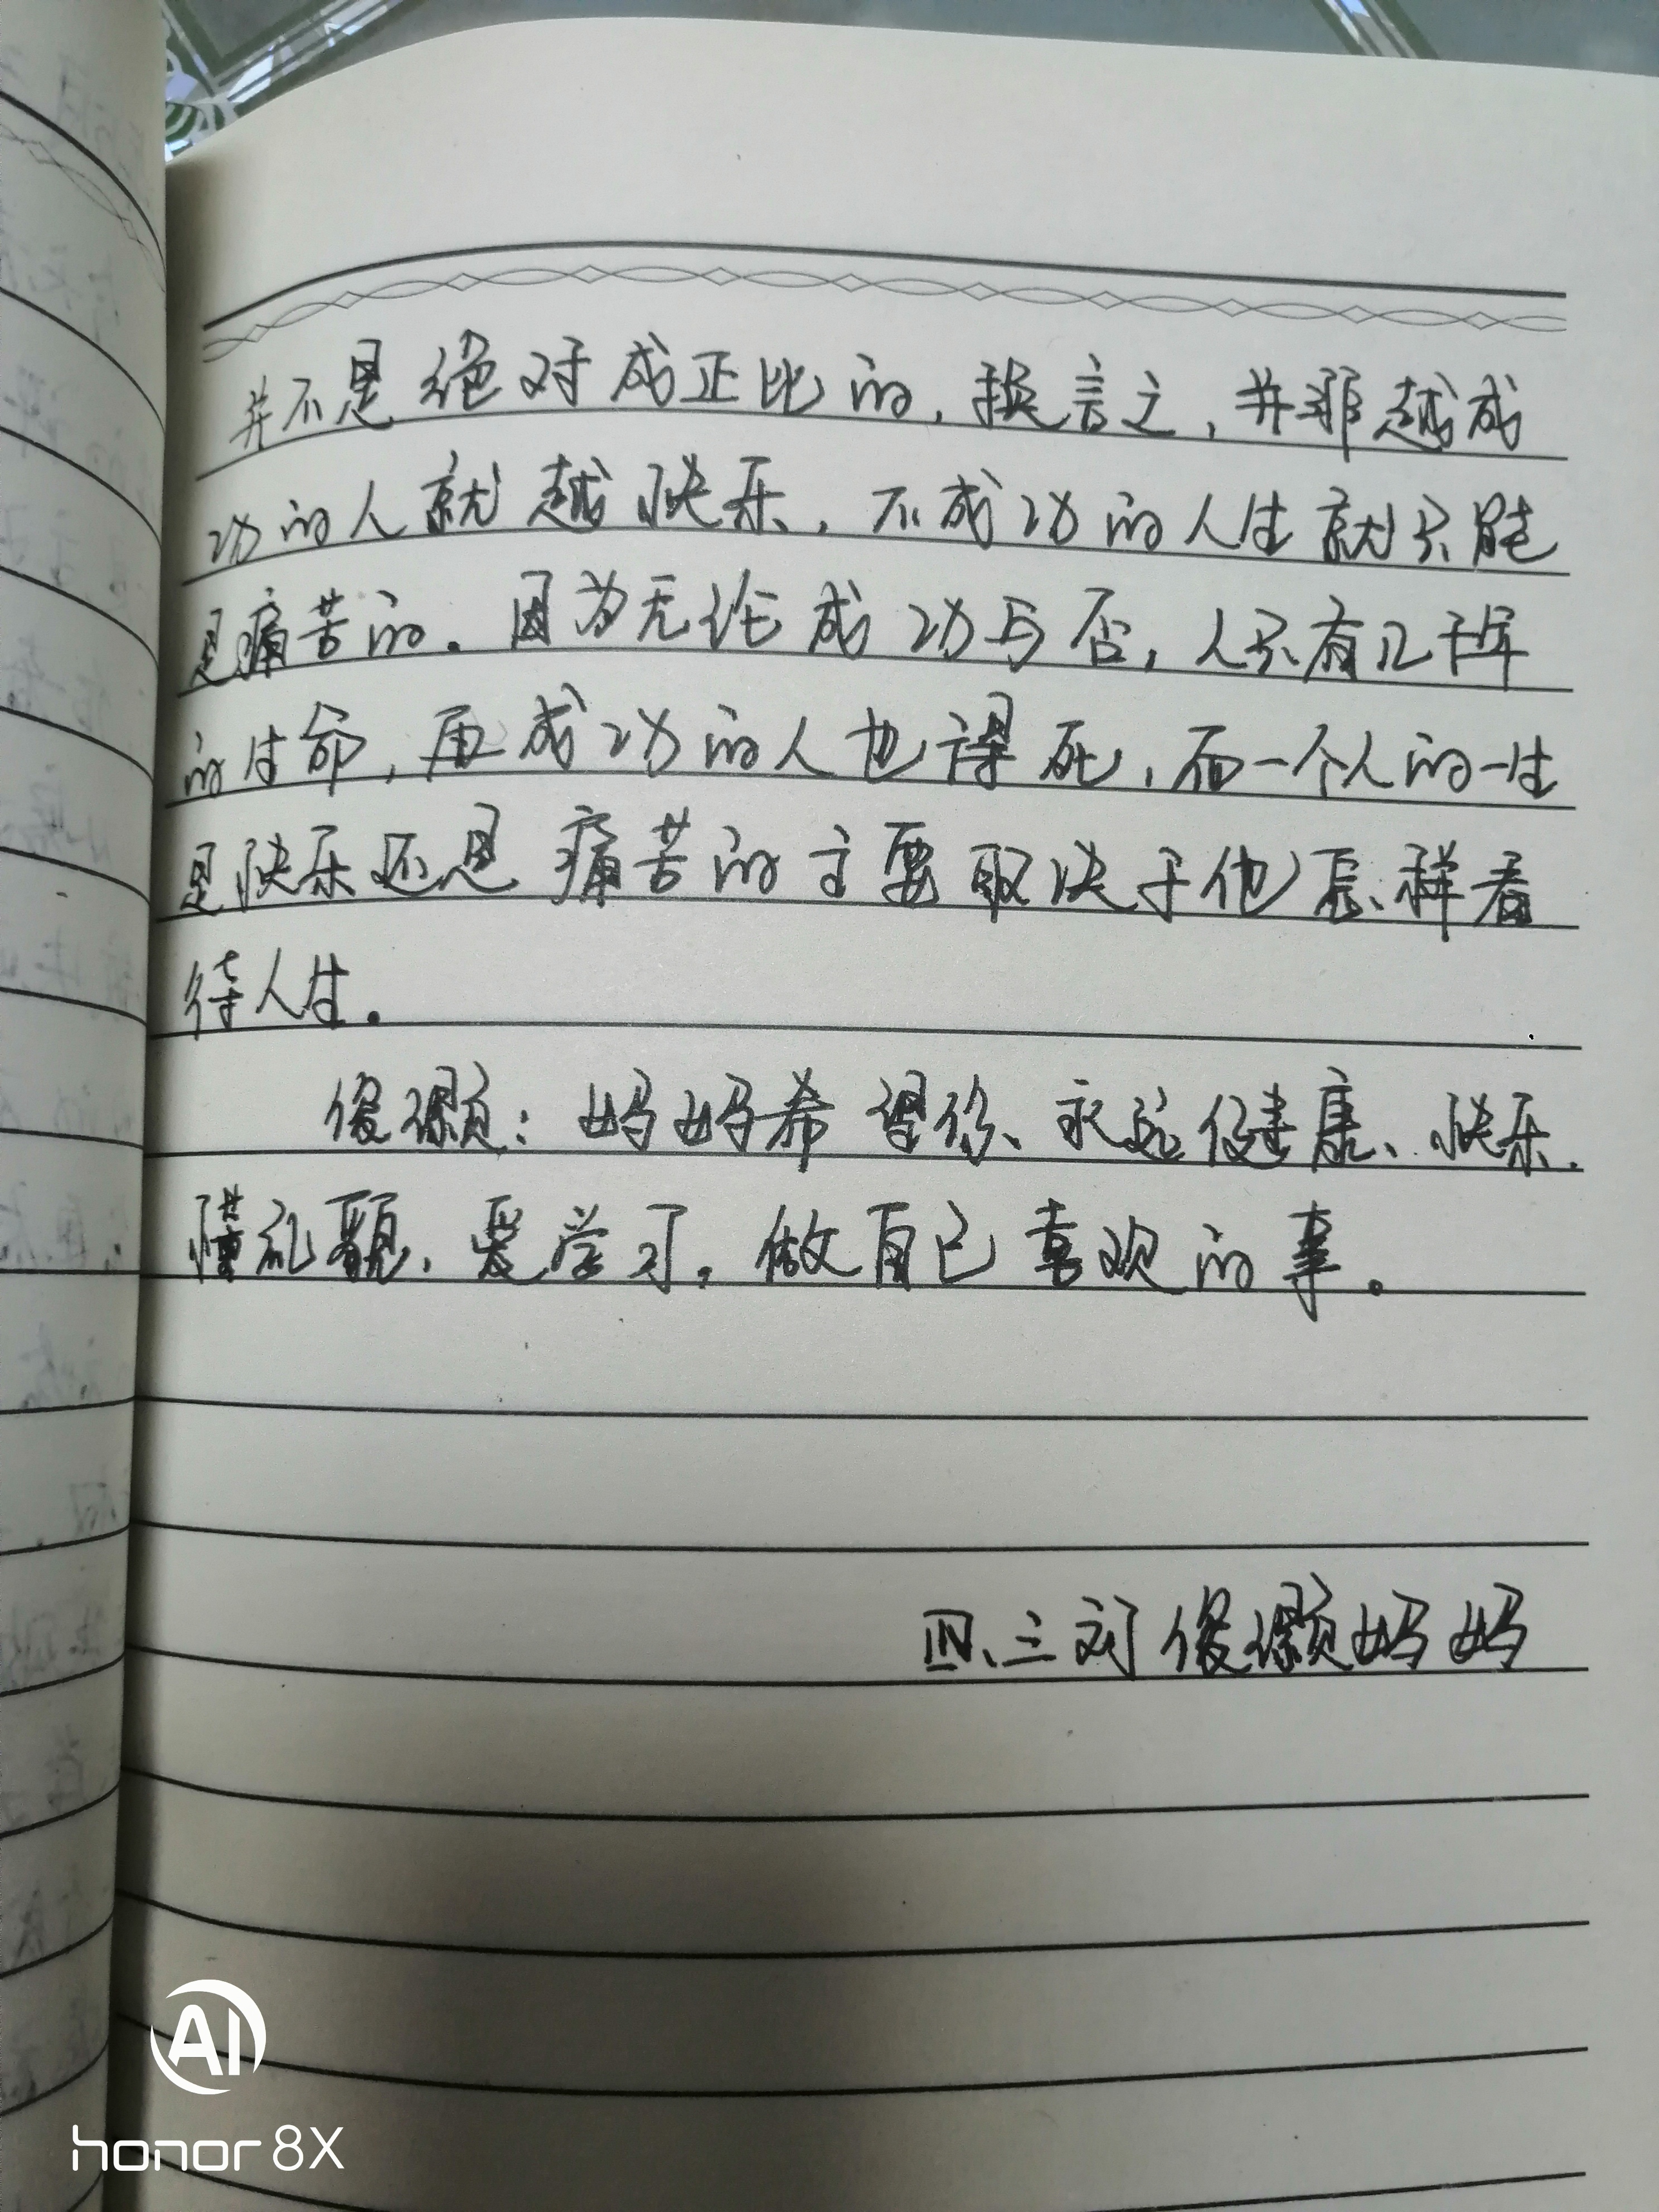 并不是绝对成正比的，换言之，并非越成
功的人就越快乐，不成功的人生就只能
是痛苦的。因为无论成功与否，人只有几十年
的生命，再成功的人也得死，而一个人的一生
是快乐还是痛苦的主要取决于他怎样看
待人生。
俊颢：妈妈希望你、永远健康、快乐、
懂礼貌、爱学习，做自己喜欢的事。
四、三刘俊颢妈妈
AI
honor 8X